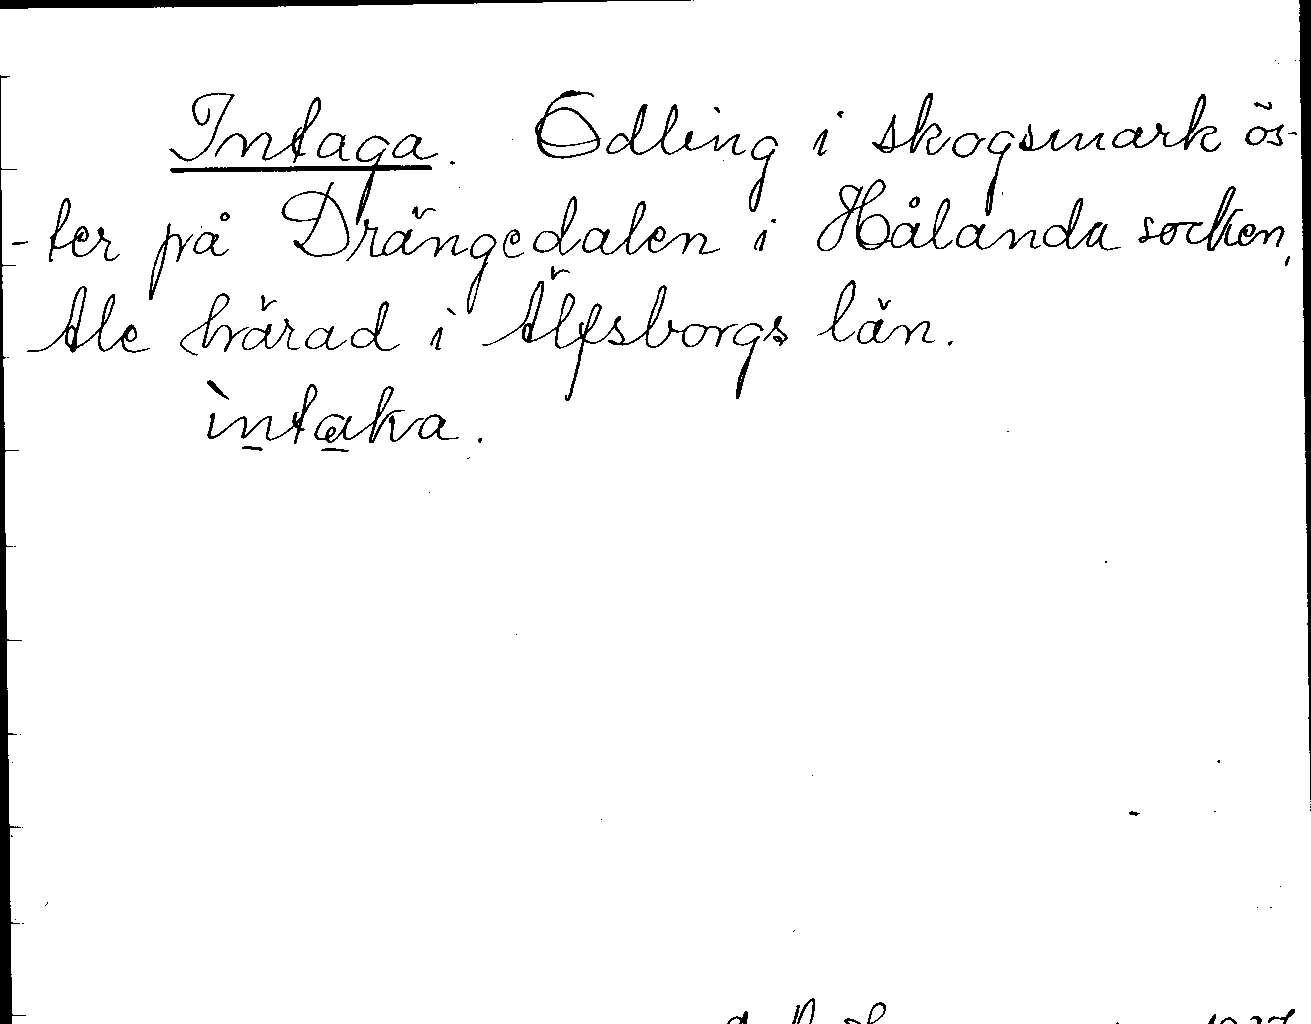 Intaga. Odling i skogsmark ös-
-ter på Drängedalen i Hålanda socken,
Ale härad i Älfsborgs län.
ìntaka.